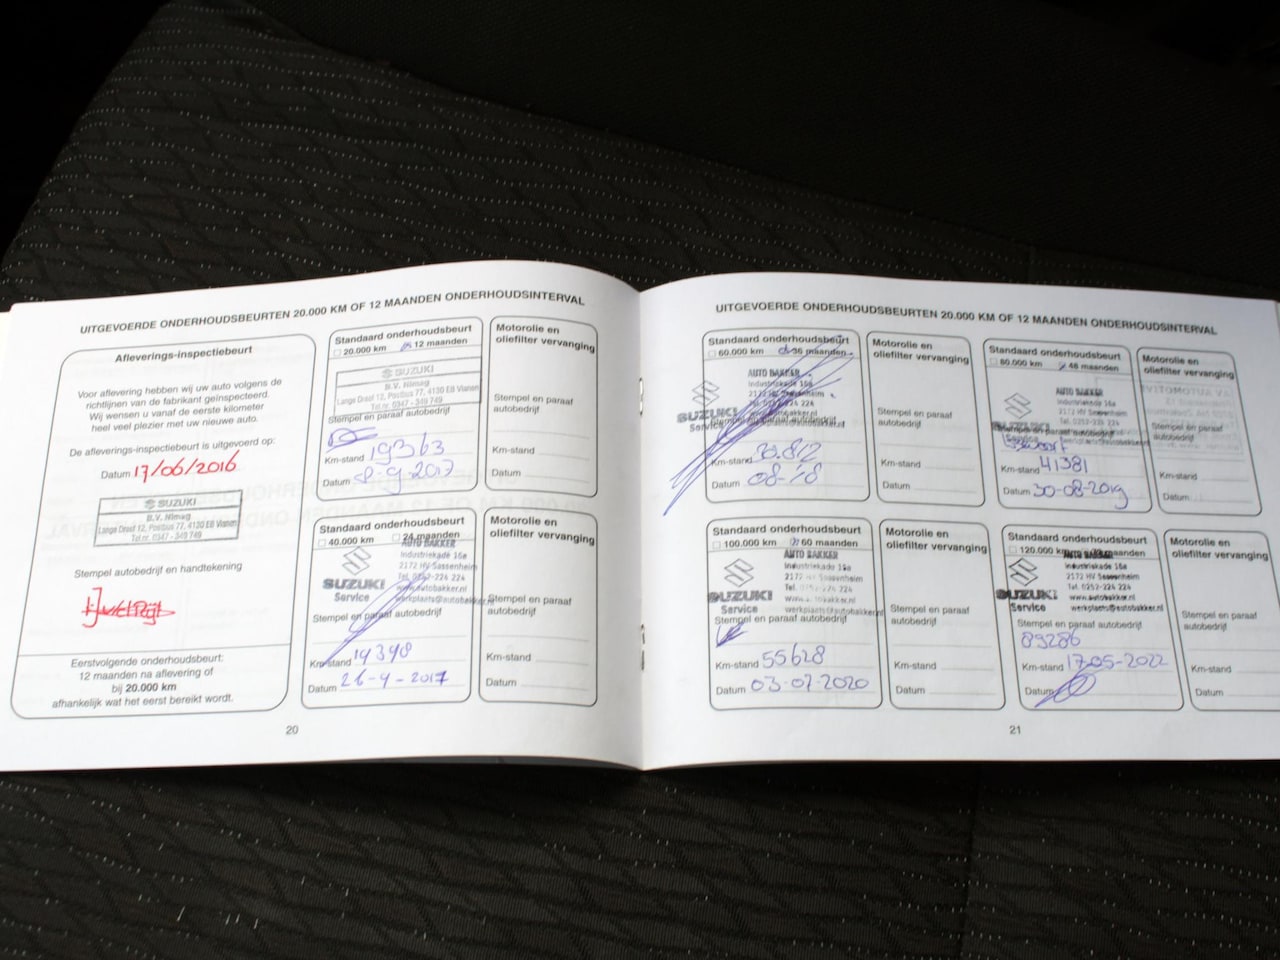 UITGEVOERDE ONDERHOUDSBEURTEN 20.000 KM OF 12 MAANDEN ONDERHOUDSINTERVAL
Afleverings-inspectiebeurt
Voor aflevering hebben wij uw auto volgens de
richtlijnen van de fabrikant geïnspecteerd.
Wij wensen u vanaf de eerste kilometer
heel veel plezier met uw nieuwe auto.
De afleverings-inspectiebeurt is uitgevoerd op:
Datum 17/06/2016
SUZUKI
B.V. Nimag
Lange Dreef 12, Postbus 77, 4130 EB Vianen
Tel.nr. 0347 - 349 749
Stempel autobedrijf en handtekening
Eerstvolgende onderhoudsbeurt:
12 maanden na aflevering of
bij 20.000 km
afhankelijk wat het eerst bereikt wordt.
Standaard onderhoudsbeurt
20.000 km 12 maanden
SUZUKI
B.V. Nimag
Lange Dreef 12, Postbus 77, 4130 EB Vianen
Tel.nr. 0347 - 349 749
Stempel en paraaf autobedrijf
Km-stand 19363
Datum 8-9-2017
Motorolie en
oliefilter vervanging
Stempel en paraaf
autobedrijf
Km-stand
Datum
Standaard onderhoudsbeurt
40.000 km 24 maanden
AUTO BAKKER
Industriekade 16a
2172 HV Sassenheim
Tel. 0252-224 224
www.autobakker.nl
werkplaats@autobakker.nl
SUZUKI
Service
Stempel en paraaf autobedrijf
Km-stand 19398
Datum 26-9-2017
Motorolie en
oliefilter vervanging
Stempel en paraaf
autobedrijf
Km-stand
Datum
20
UITGEVOERDE ONDERHOUDSBEURTEN 20.000 KM OF 12 MAANDEN ONDERHOUDSINTERVAL
Standaard onderhoudsbeurt
60.000 km 36 maanden
AUTO BAKKER
Industriekade 16a
2172 HV Sassenheim
Tel. 0252-224 224
SUZUKI
Service
Stempel en paraaf autobedrijf
Km-stand 30.812
Datum 08-'18
Motorolie en
oliefilter vervanging
Stempel en paraaf
autobedrijf
Km-stand
Datum
Standaard onderhoudsbeurt
80.000 km 48 maanden
AUTO BAKKER
Industriekade 16a
2172 HV Sassenheim
Tel. 0252-224 224
SUZUKI
Service
Stempel en paraaf autobedrijf
Km-stand 41381
Datum 30-08-2019
Motorolie en
oliefilter vervanging
Stempel en paraaf
autobedrijf
Km-stand
Datum
Standaard onderhoudsbeurt
100.000 km 60 maanden
AUTO BAKKER
Industriekade 16a
2172 HV Sassenheim
Tel. 0252-224 224
www.autobakker.nl
werkplaats@autobakker.nl
SUZUKI
Service
Stempel en paraaf autobedrijf
Km-stand 55628
Datum 03-07-2020
Motorolie en
oliefilter vervanging
Stempel en paraaf
autobedrijf
Km-stand
Datum
Standaard onderhoudsbeurt
120.000 km maanden
AUTO BAKKER
Industriekade 16a
2172 HV Sassenheim
Tel. 0252-224 224
www.autobakker.nl
werkplaats@autobakker.nl
SUZUKI
Service
Stempel en paraaf autobedrijf
83286
Km-stand 17-05-2022
Datum
Motorolie en
oliefilter vervanging
Stempel en paraaf
autobedrijf
Km-stand
Datum
21